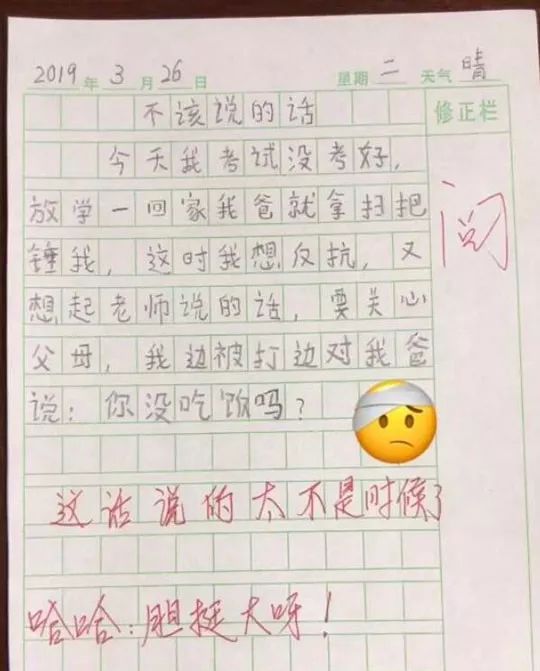 2019年3月26日 星期二 天气晴
不该说的话
修正栏
今天我考试没考好，
放学一回家我爸就拿扫把
锤我，这时我想反抗，又
想起老师说的话，要关心
父母，我边被打边对我爸
说：你没吃饭吗？
阅
这话说的太不是时候了
哈哈：胆挺大呀！